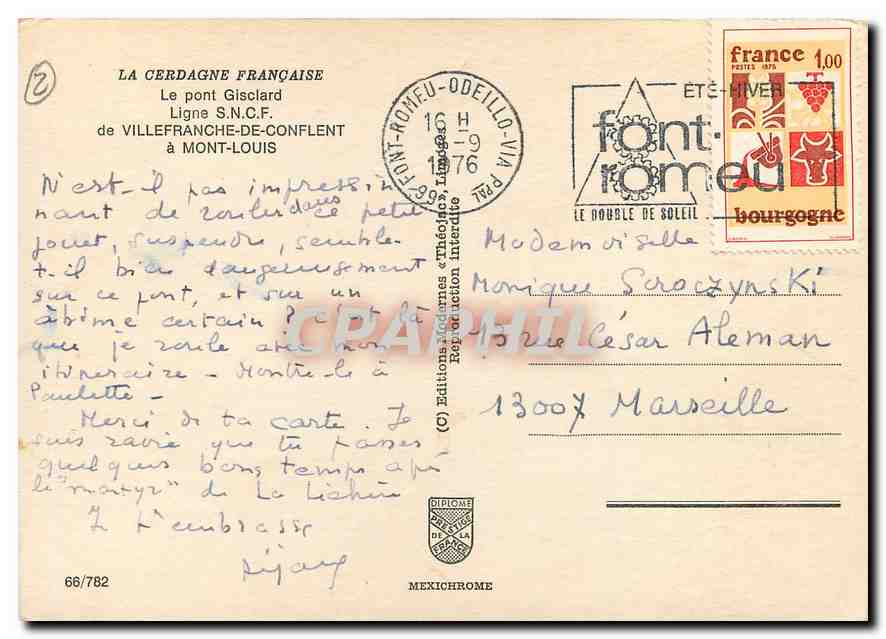 2
LA CERDAGNE FRANÇAISE
Le pont Gisclard
Ligne S.N.C.F.
de VILLEFRANCHE-DE-CONFLENT
à MONT-LOUIS
N'est-il pas impression
nant de rouler dans ce petit
jouet, suspendu, semble-
t-il bien dangereusement
sur ce pont, et sur un
abîme certain ? c'est là
que je roule avec mon
itinéraire - Montre-le à
Paulette -
Merci de ta carte. Je
suis ravie que tu passes
quelques bons temps après
le "martyr" de La
Je t'embrasse
66/782
(C) Editions Modernes «Théojac», Limoges
Reproduction interdite
DIPLOME
PRESTIGE
DE LA
FRANCE
MEXICHROME
66 FONT-ROMEU-ODEILLO-VIA Ppal
16 H
-9
1976
ÉTÉ-HIVER
font-
romeu
LE DOUBLE DE SOLEIL
france 1,00
POSTES 1975
bourgogne
Mademoiselle
Monique Soroczynski
13 rue César Aleman
13007 Marseille
CPAPHIL